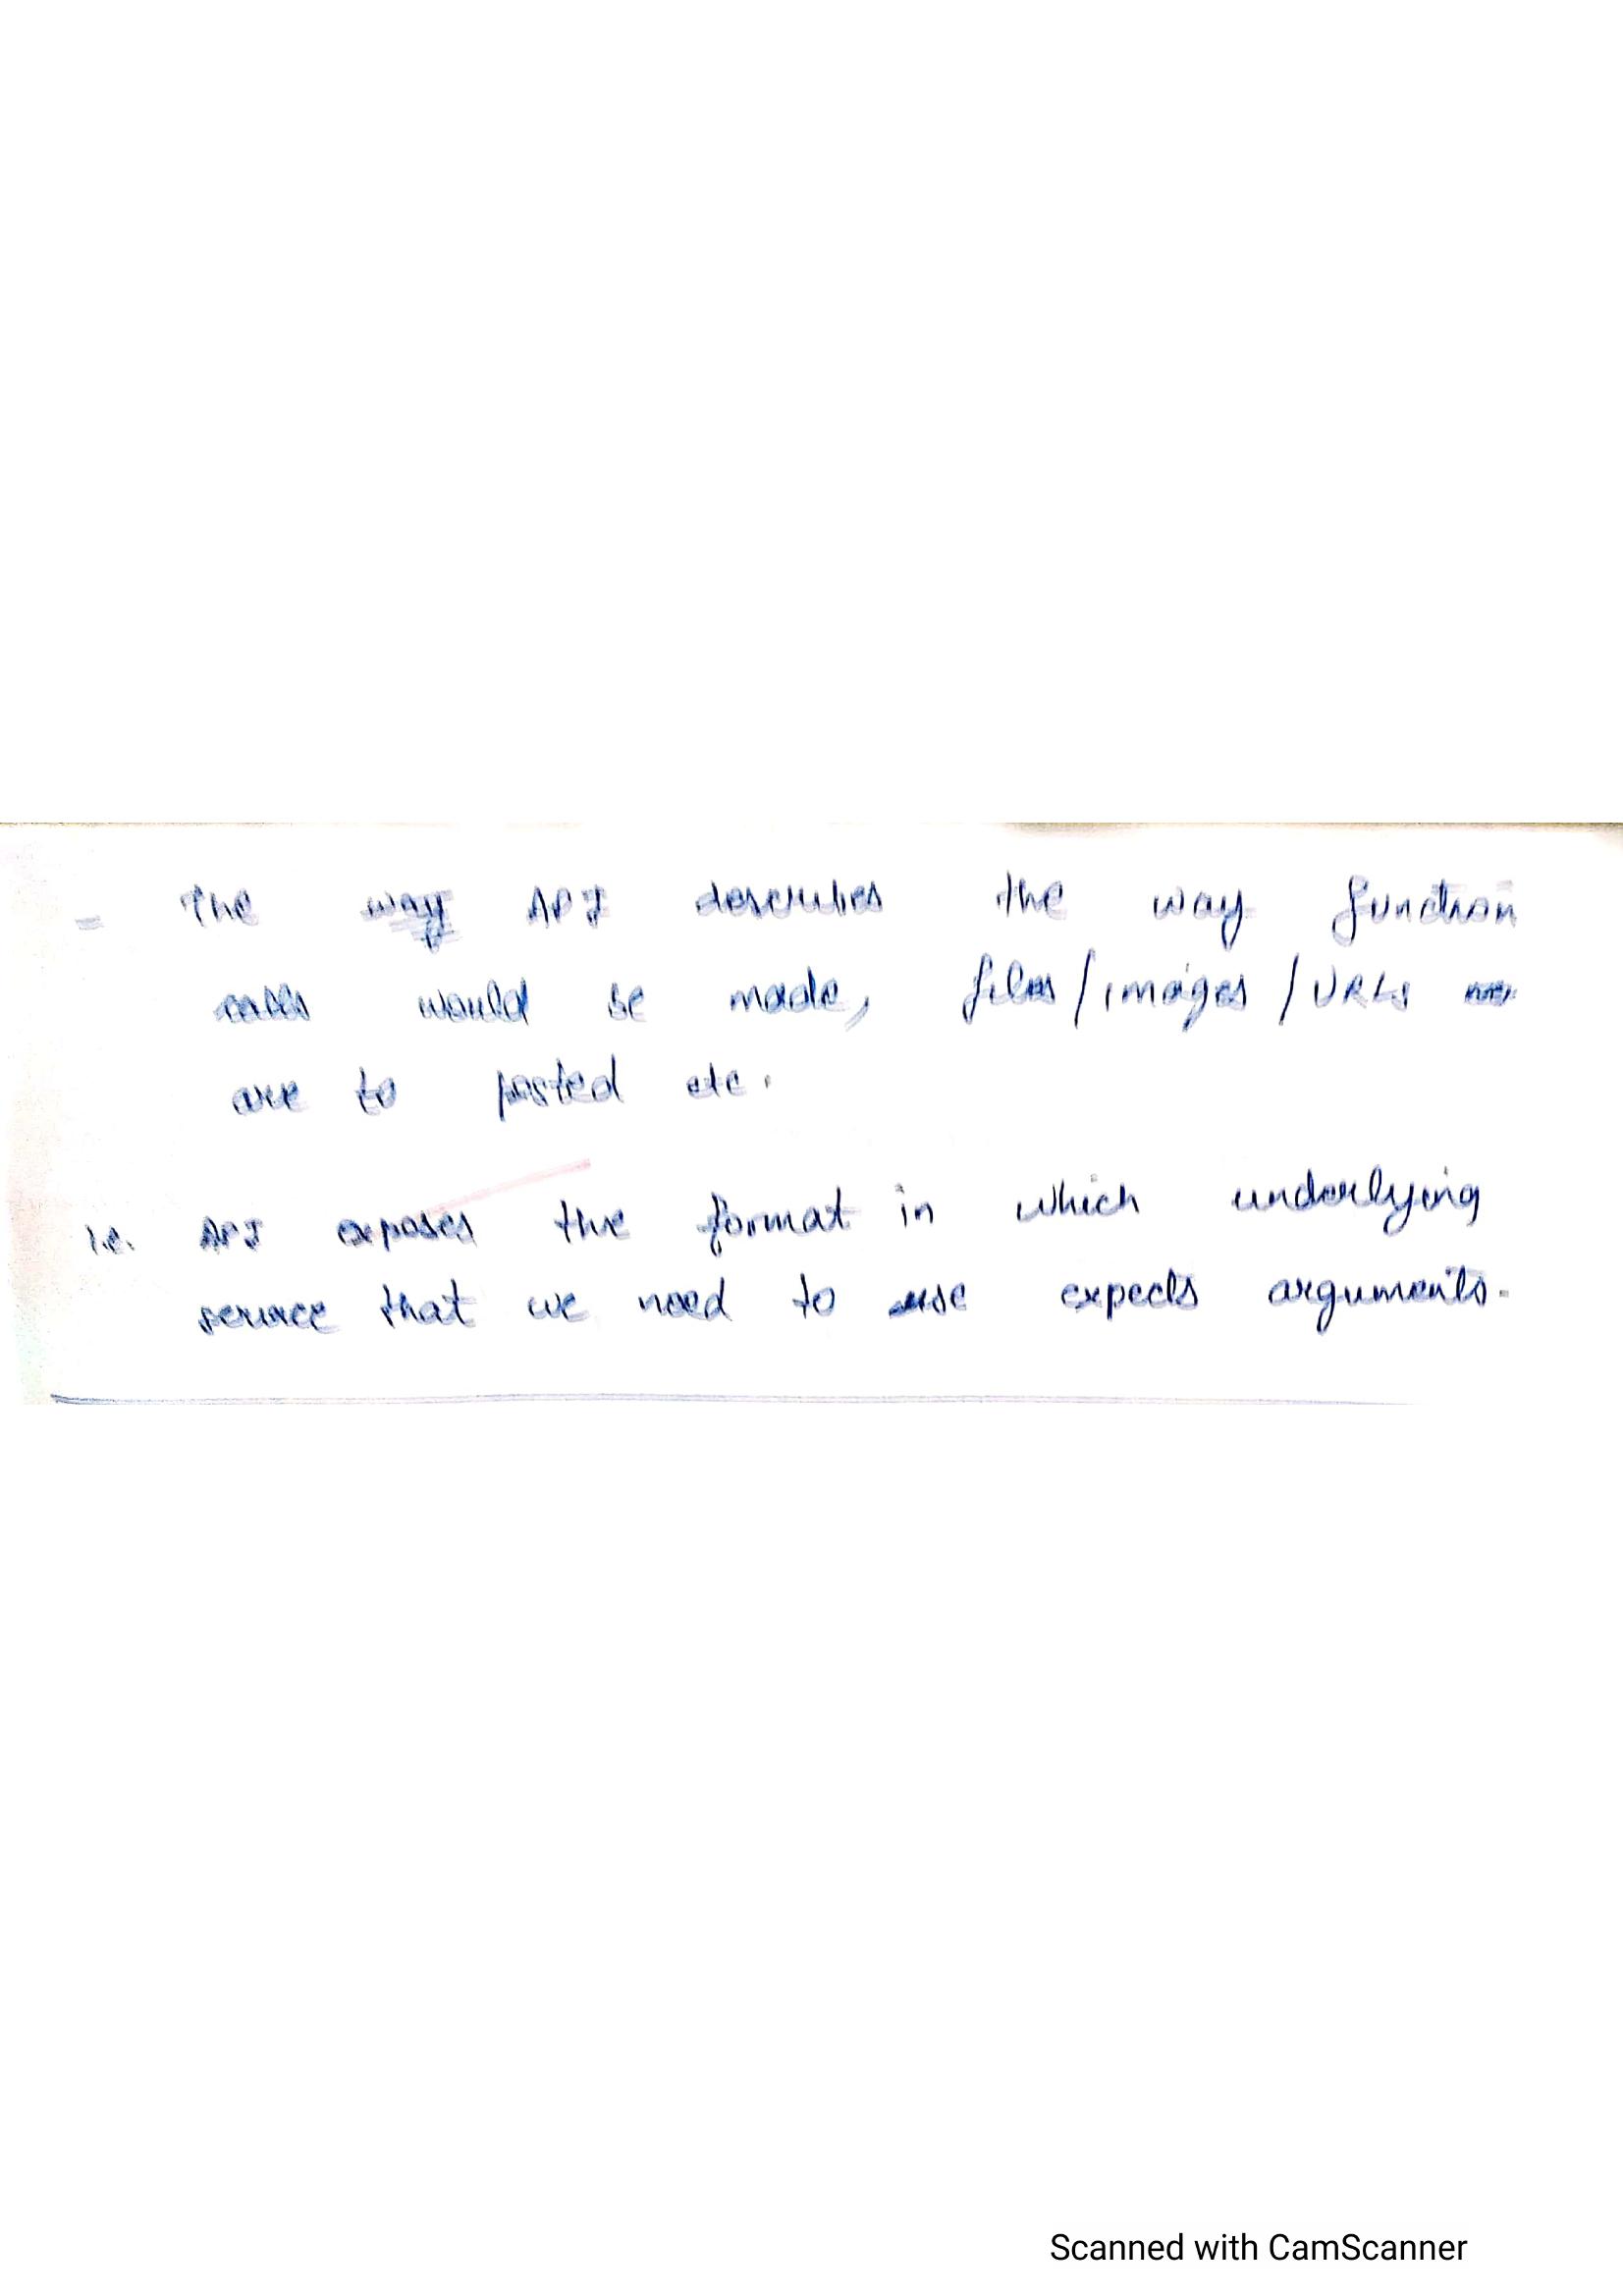 - The API describes the way function
calls would be made, files/images/URLs
are to posted etc.
i.e. API exposes the format in which underlying
service that we need to use expects arguments.
Scanned with CamScanner